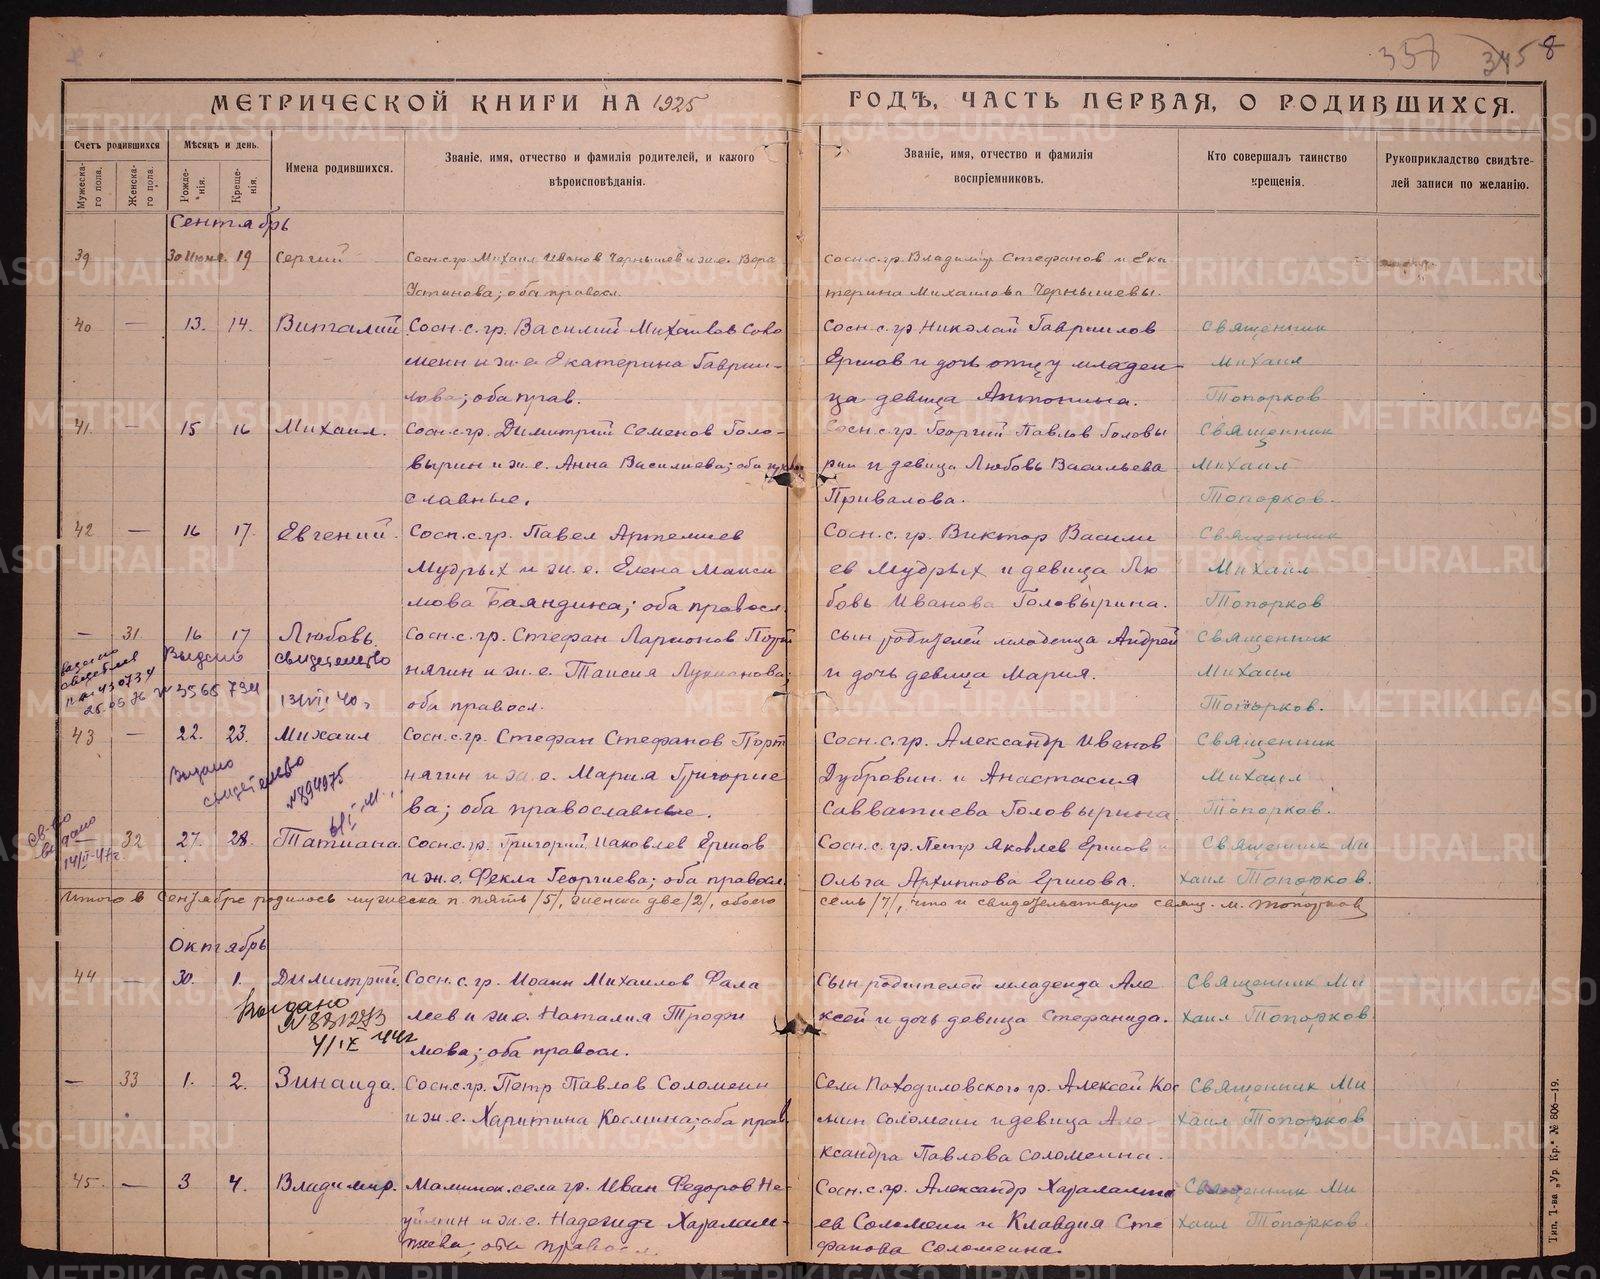 358 345 8
МЕТРИЧЕСКОЙ КНИГИ НА 1925 ГОДЪ, ЧАСТЬ ПЕРВАЯ, О РОДИВШИХСЯ.
Счетъ родившихся
Мужеска-го пола.
Женска-го пола.
Мѣсяцъ и день.
Рожде-нія.
Креще-нія.
Имена родившихся.
Званіе, имя, отчество и фамилія родителей, и какого
вѣроисповѣданія.
Званіе, имя, отчество и фамилія
воспріемниковъ.
Кто совершалъ таинство
крещенія.
Рукоприкладство свидѣте-
лей записи по желанію.
Сентябрь
39 30 Июня. 19 Сергий Сосн.с.гр. Михаил Иванов Чернышев и ж.е. Вера
Устинова; оба правосл.
Сосн.с.гр. Владимир Стефанов и Ека
терина Михаилова Чернышевы.
40 — 13. 14. Виталий Сосн.с.гр. Василий Михаилов Соло
меин и ж.е. Екатерина Гаврии-
лова; оба прав.
Сосн.с.гр Николай Гавриилов
Ершов и дочь отцу младен
ца девица Антонина.
Священник
Михаил
Топорков
41 — 15 16 Михаил. Сосн.с.гр. Димитрий Семенов Голо-
вырин и ж.е. Анна Василиева; оба право
славные.
Сосн.с.гр. Георгий Павлов Головы
рин и девица Любовь Васильева
Привалова.
Священник
Михаил
Топорков.
42 — 16 17. Евгений. Сосн.с.гр. Павел Артемиев
Мудрых и ж.е. Елена Макси
мова Баяндина; оба правосл.
Сосн.с.гр. Виктор Васили
ев Мудрых и девица Лю
бовь Иванова Головырина.
Священник
Михаил
Топорков
— 31. 16 17 Любовь Сосн.с.гр. Стефан Ларионов Порт
нягин и ж.е. Таисия Лукианова;
оба правосл.
Выдано свидетельство
№ 3565794 13/VII 40 г
сын родителей младенца Андрей
и дочь девица Мария.
Священник
Михаил
Топорков.
43 — 22. 23. Михаил Сосн.с.гр. Стефан Стефанов Порт
нягин и ж.е. Мария Григорие
ва; оба православные.
Выдано
свидетелево
№894975
Сосн.с.гр. Александр Иванов
Дубровин и Анастасия
Савватиева Головырина
Священник
Михаил
Топорков.
Св-во
выдано
14/II-47г
32 27. 28. Татиана. Сосн.с.гр. Григорий Иаковлев Ершов
и ж.е. Фекла Георгиева; оба правосл.
Сосн.с.гр. Петр Яковлев Ершов и
Ольга Архиппова Ершова.
Священник Ми
хаил Топорков.
Итого в Сентябре родилось мужеска п. пять /5/, женска две /2/, обоего семь /7/, что и свидетельствую свящ. М. Топорков
Октябрь
44 — 30. 1. Димитрий. Сосн.с.гр. Иоанн Михаилов Фала
леев и ж.е. Наталия Трофи
мова; оба правосл.
Выдано
4/IX 44г
Сын родителей младенца Але
ксей и дочь девица Стефанида.
Священник Ми
хаил Топорков.
— 33 1. 2. Зинаида. Сосн.с.гр. Петр Павлов Соломеин
и ж.е. Харитина Космина; оба прав.
Села Походиловского гр. Алексей Кос
мин Соломеин и девица Але-
ксандра Павлова Соломеина.
Священник Ми
хаил Топорков
45. — 3 4. Владимир. села гр. Иван Федоров Не-
и ж.е. Надежда Хараламп-
пиева; оба правосл.
Сосн.с.гр. Александр Харалампи
ев Соломеин и Клавдия Сте
фанова Соломеина.
Священник Ми
хаил Топорков.
Тип. Т-ва „Ур. Кр." № 806—19.
METRIKI.GASO-URAL.RU